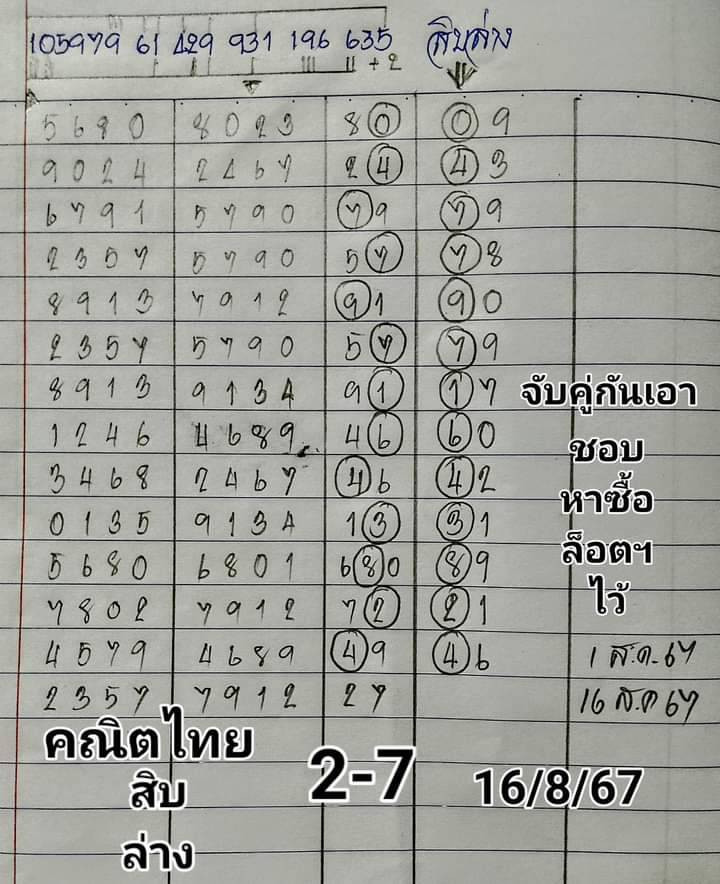 105979 61 429 931 196 635 สิบล่าง
+ 2
5680 8023 80 09
9024 2467 24 43
6791 5790 79 79
2357 5790 57 78
8913 7912 91 90
2357 5790 57 79
8913 9134 91 17
1246 4689 46 60
3468 2467 46 42
0135 9134 13 31
5680 6801 680 89
7802 7912 72 21
4579 4689 49 46 1 ส.ค.67
2357 7912 27 16 ส.ค 67
จับคู่กันเอา
ชอบ
หาซื้อ
ล็อตฯ
ไว้
คณิตไทย
สิบ
ล่าง
2-7
16/8/67